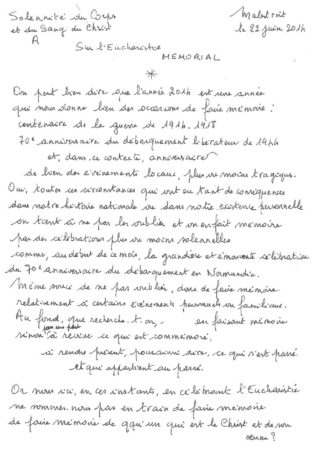 Solennité du Corps
et du Sang du Christ
A
Malestroit
le 22 juin 2014
Sur l'Eucharistie
MEMORIAL
*
On peut bien dire que l'année 2014 est une année
qui nous donne bien des occasions de faire mémoire :
centenaire de la guerre de 1914-1918
70e anniversaire du débarquement libérateur de 1944
et, dans ce contexte, anniversaires
de bien des événements locaux, plus ou moins tragiques.
Oui, toutes ces circonstances qui ont eu tant de conséquences
dans notre histoire nationale ou dans notre existence personnelle
on tient à ne pas les oublier et on en fait mémoire
par des célébrations plus ou moins solennelles
comme, au début de ce mois, la grandiose et émouvante célébration
du 70e anniversaire du débarquement en Normandie.
Même souci de ne pas oublier, donc de faire mémoire
relativement à certains événements personnels ou familiaux.
Au fond, que recherche-t-on, en faisant mémoire
sinon un peu à revivre ce qui est commémoré,
à rendre présent, pour ainsi dire, ce qui s'est passé
et qui appartient au passé.
Or nous ici, en ces instants, en célébrant l'Eucharistie
ne sommes-nous pas en train de faire mémoire
de faire mémoire de qqu'un qui est le Christ et de son
œuvre ?